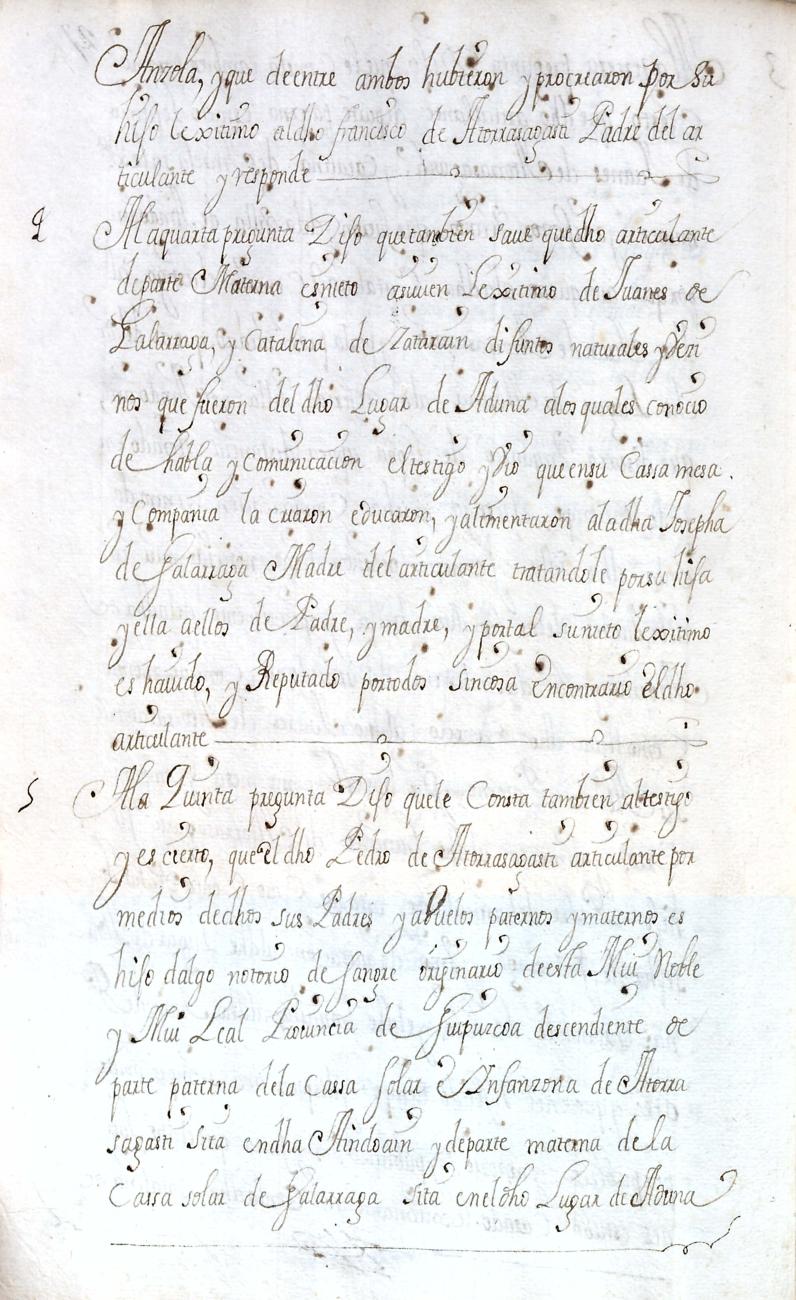 Anzola, y que de entre ambos hubieron y procrearon por su
hijo lexitimo al dho francisco de Atorrasagasti Padre del ar
ticulante y responde
4 A la quarta pregunta Dijo que tambien save que dho articulante
de parte Materna es nieto asuuen Lexitimo de Juanes de
Galarraga, y Catalina de Zatarain difuntos naturales y Vezi
nos que fueron del dho Lugar de Aduna a los quales conocio
de habla y Comunicacion el testigo y Vio que en su Cassa mesa
y Compania la criaron educaron, y alimentaron a la dha Josepha
de Galarraga Madre del articulante tratandole por su hija
y ella a ellos de Padre, y madre, y por tal su nieto lexitimo
es hauido, y Reputado por todos sin cosa Encontrario el dho
articulante
5 A la Quinta pregunta Dijo que le Consta tambien al testigo
y es cierto, que el dho Pedro de Atorrasagasti articulante por
medios de dhos sus Padres y abuelos paternos y maternos es
hijo dalgo notorio de sangre originario de esta Mui Noble
y Mui Leal Prouincia de Guipuzcoa descendiente de
parte paterna de la Cassa solar e Infanzona de Atorra
sagasti sita en dha Aindoain y de parte materna de la
Cassa solar de Galarraga sita en el dho Lugar de Aduna